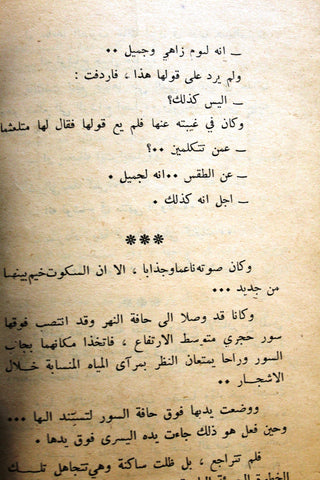 ـ انه ليوم زاهي وجميل ..
ولم يرد على قولها هذا ، فاردفت :
ـ اليس كذلك؟
وكان في غيبته عنها فلم يع قولها فقال لها متلعثما
ـ عمن تتكلمين ..؟
ـ عن الطقس ..انه لجميل .
ـ اجل انه كذلك .
***
وكان صوته ناعما وجذابا ، الا ان السكوت خيم بينهما
من جديد ...
وكانا قد وصلا الى حافة النهر وقد انتصب فوقها
سور حجري متوسط الارتفاع ، فاتخذا مكانهما بجانب
السور وراحا يمتعان النظر بمرآى المياه المنسابة خلال
الاشجار ..
ووضعت يدها فوق حافة السور لتستند اليها ...
وحين فعل هو ذلك جاءت يده اليسرى فوق يدها .
فلم تتراجع ، بل ظلت ساكنة وهي تتجاهل تلك